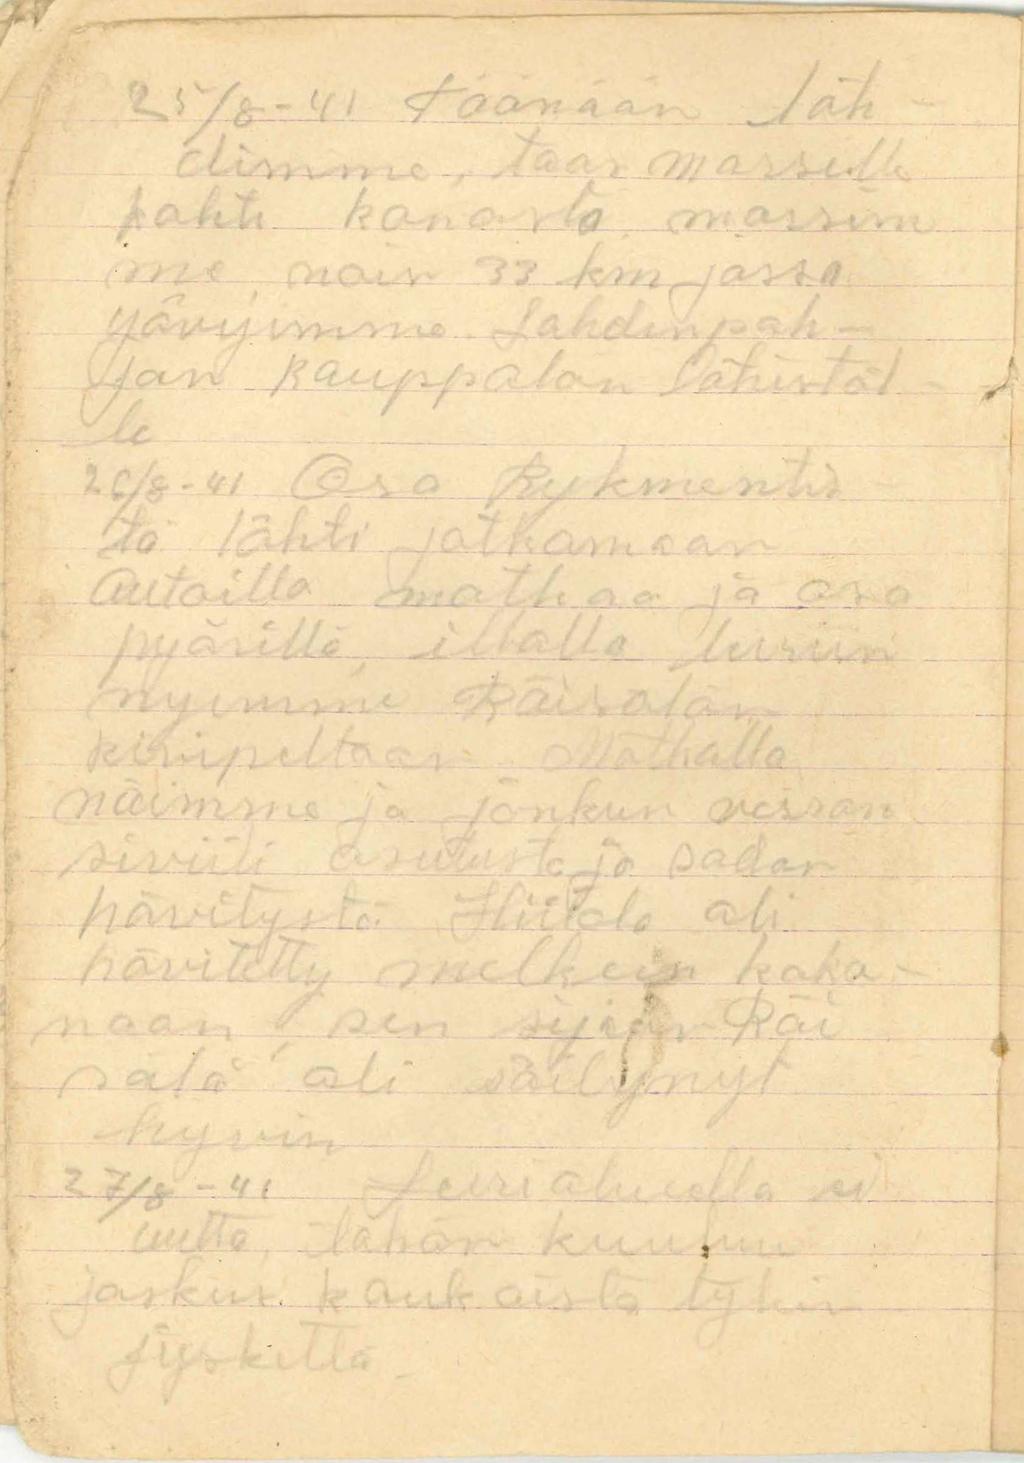 25/8-41 Täänään läh-
dimme, taas marssille
kohti kanasta marssim
me noin 33 km jossa
yövyimme Lahdenpoh-
jan kauppalan lähistöl-
le
26/8-41 Osa Rykmentis-
tä lähti jatkamaan
autoilla matkaa ja osa
pyörillä, illalla leiriin
nyimme Räisälän
kivipeltoon Matkalla
näimme ja jonkun verran
siviili asutusta ja sodan
hävitystä. Hiitola oli
hävitetty melkein koko-
naan, sen sijaan Räi
sälä oli säilynyt
hyvin
27/8-41 Leirialueella ei
uutta, tähän kuuluu
joskus kaukaista tykin
jyskettä